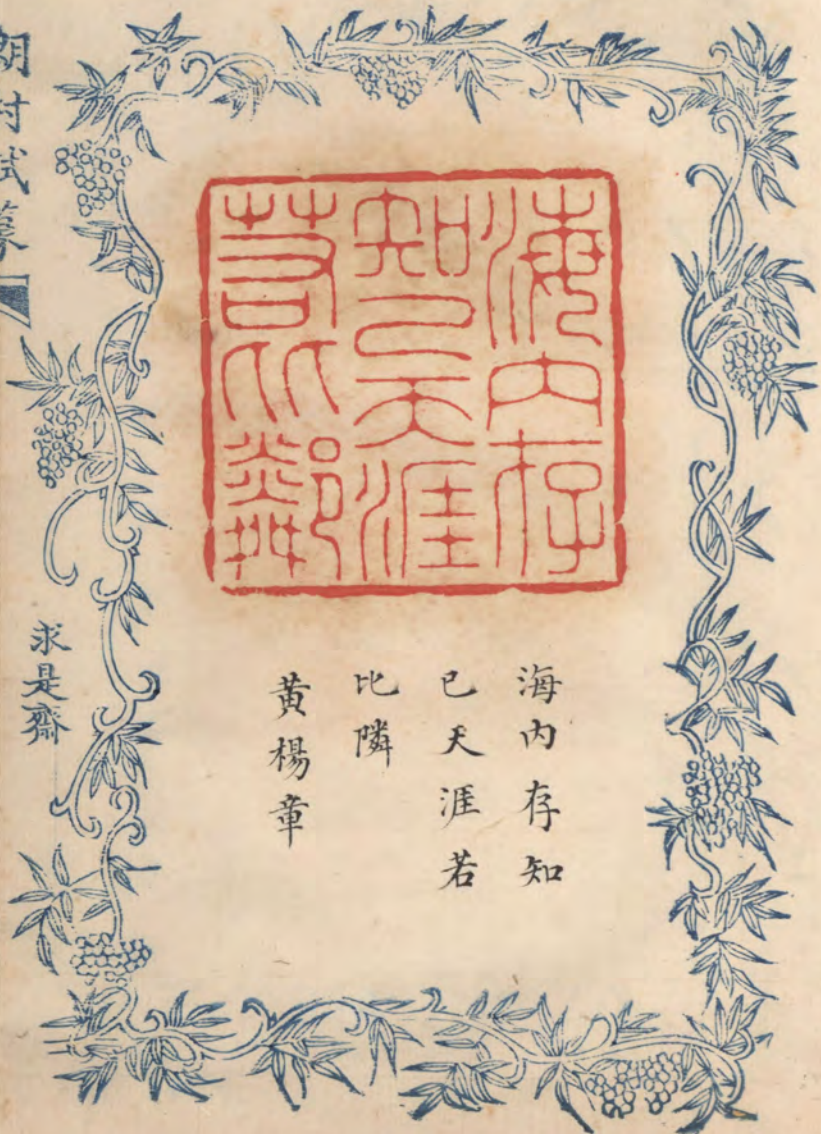 海内存
知己天涯
若比鄰
海内存知
已天涯若
比隣
黃楊章
村試篆
求是齋